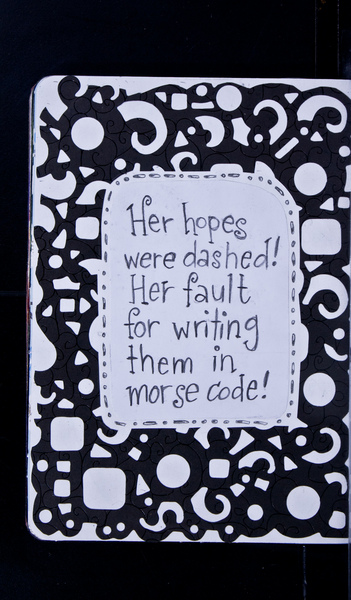 Her hopes
were dashed!
Her fault
for writing
them in
morse code!